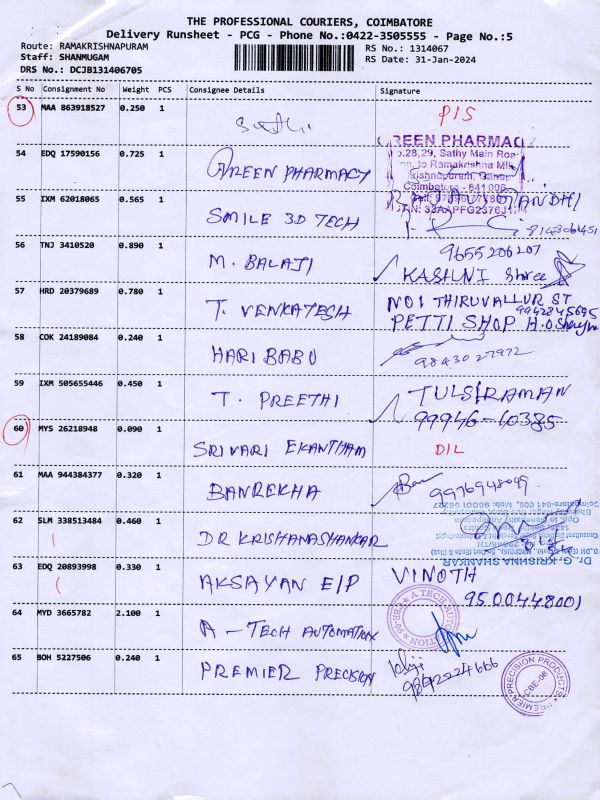 THE PROFESSIONAL COURIERS, COIMBATORE
Delivery Runsheet - PCG - Phone No.:0422-3505555 - Page No.:5
Route: RAMAKRISHNAPURAM
RS No.: 1314067
Staff: SHANMUGAM
RS Date: 31-Jan-2024
DRS No.: DCJB131406705
S No Consignment No Weight PCS Consignee Details Signature
53 MAA 863918527 0.250 1
PIS
54 EDQ 17590156 0.725 1 GREEN PHARMACY
GREEN PHARMACY
28,29, Sathy Main Road
to Ramakrishna Mill
Coimbatore - 641006
55 IXM 62018065 0.565 1 SMILE 3D TECH
GANDHI
56 TNJ 3410520 0.890 1 M. BALAJI
9655206207
KASHNI Shree
57 HRD 20379689 0.780 1 T. VENKATECH
NO1 THIRUVALLUR ST
9942845695
PETTI SHOP H.O
58 COK 24189084 0.240 1 HARI BABU
9843027972
59 IXM 505655446 0.450 1 T. PREETHI
TULSIRAMAN
99946-10385
60 MYS 26218948 0.090 1 SRIVARI EKANTHAM
DIL
61 MAA 944384377 0.320 1 BANREKHA
9976948049
62 SLM 338513484 0.460 1 DR KRISHANASHANKAR
Dr. G. KRISHNA SHANKAR
63 EDQ 20893998 0.330 1 AKSAYAN E/P
VINOTH
9500448001
64 MYD 3665782 2.100 1 A - TECH AUTOMATION
A TECH AUTOMATION
65 BOH 5227506 0.240 1 PREMIER PRECISION
9842224666
PREMIER PRECISION PRODUCTS
CBE-06